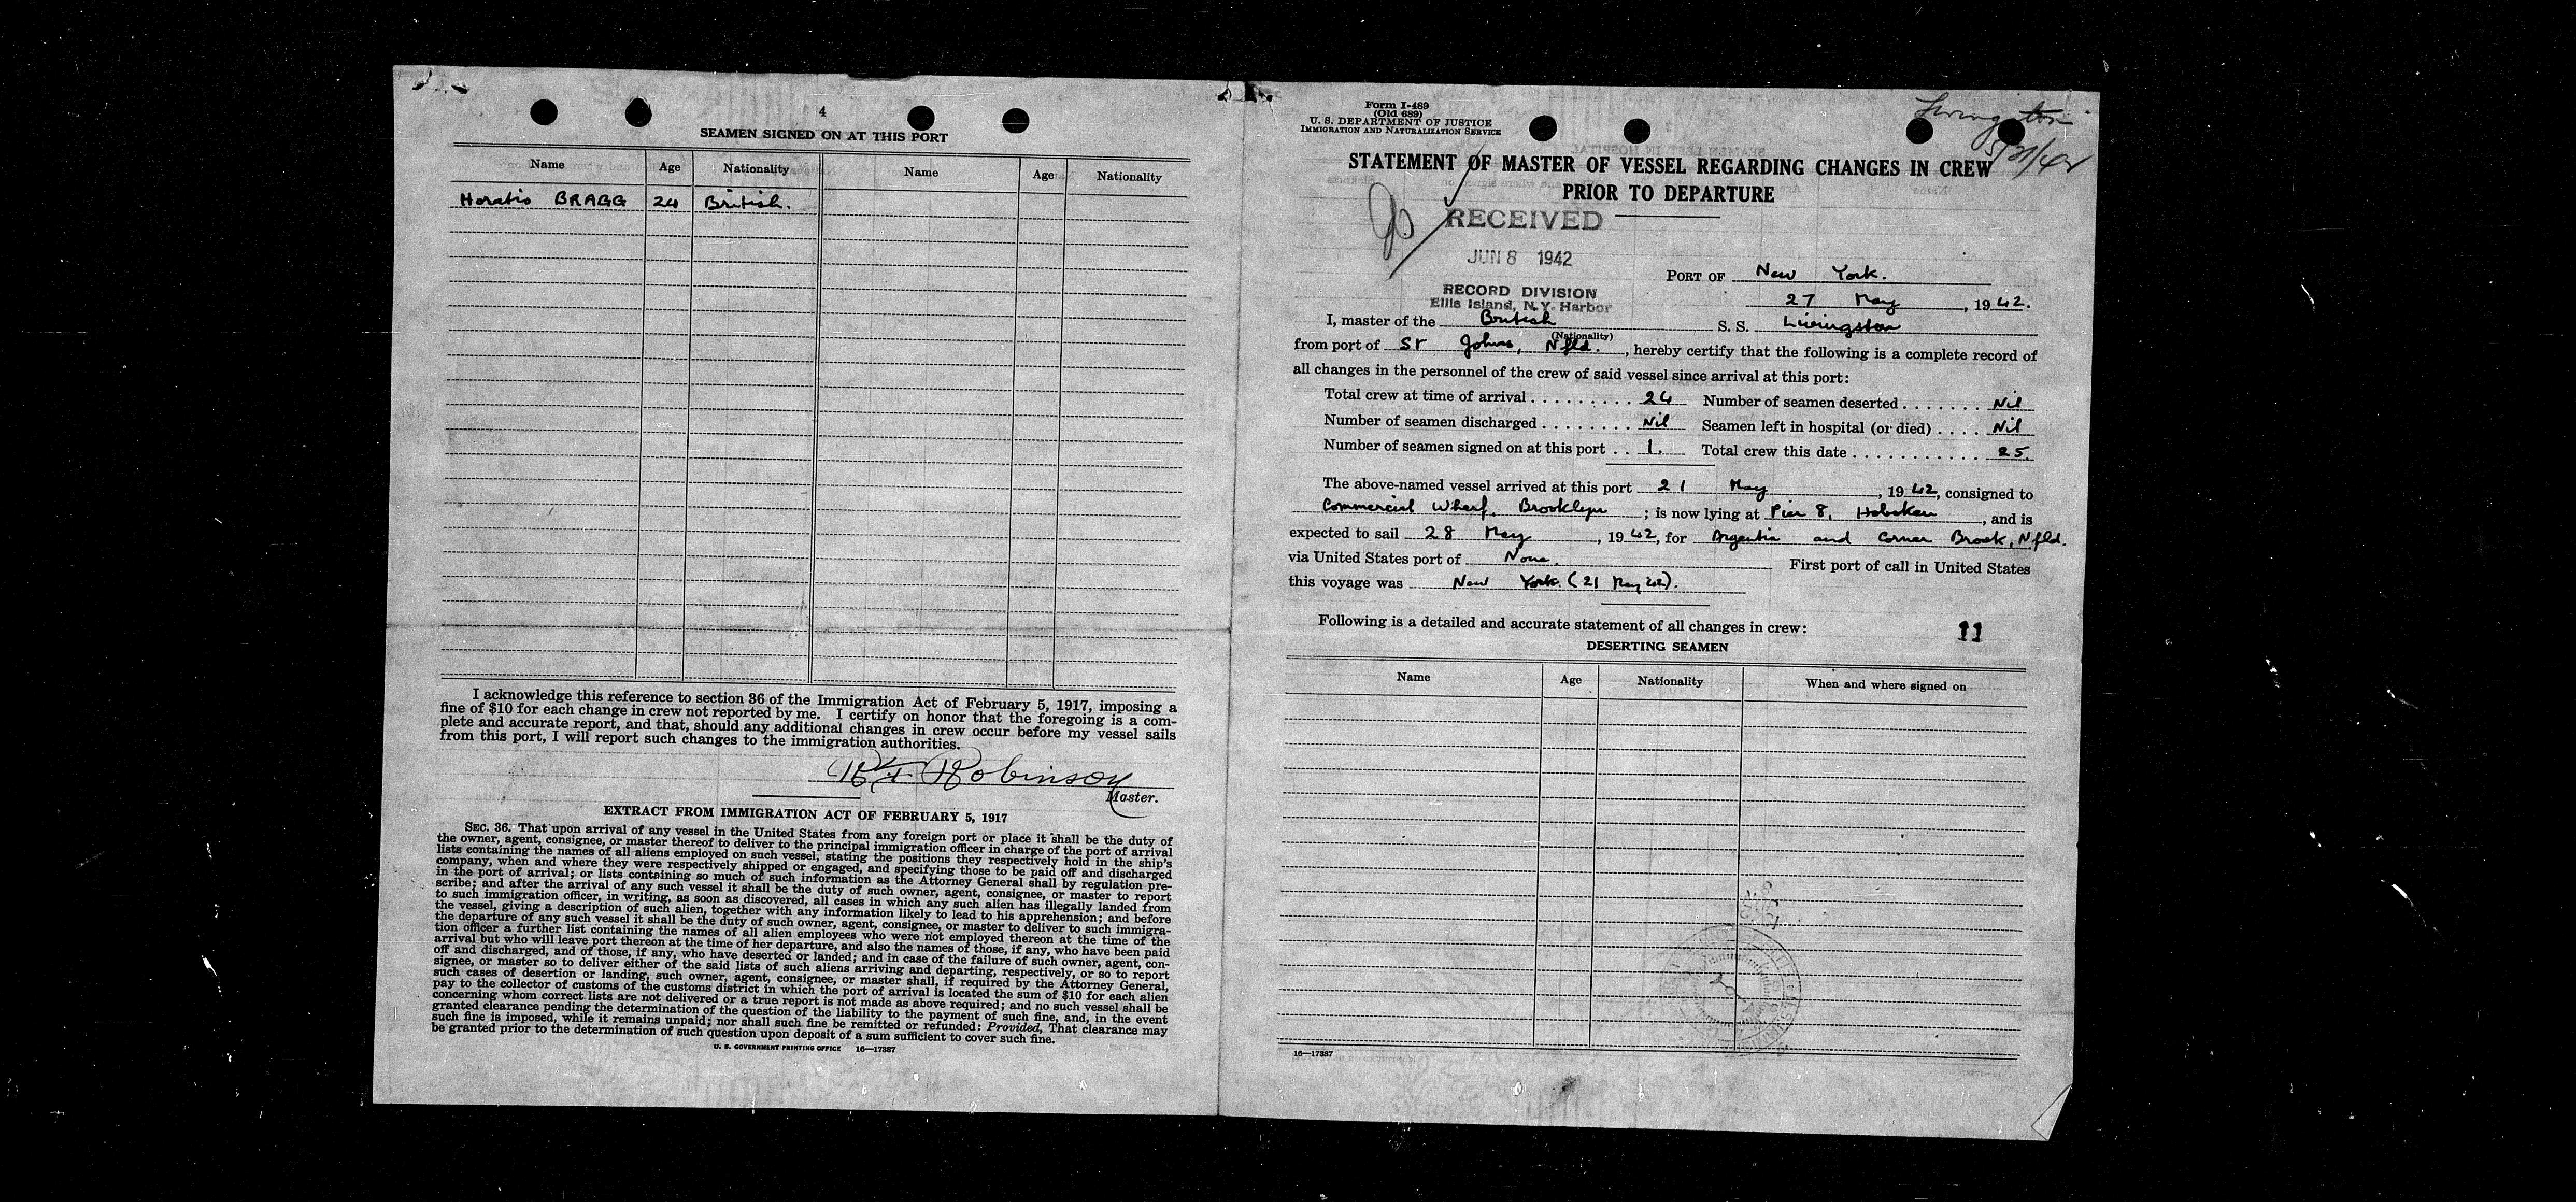 4
SEAMEN SIGNED ON AT THIS PORT
Name Age Nationality Name Age Nationality
Horatio BRAGG 24 British.
I acknowledge this reference to section 36 of the Immigration Act of February 5, 1917, imposing a
fine of $10 for each change in crew not reported by me. I certify on honor that the foregoing is a com-
plete and accurate report, and that, should any additional changes in crew occur before my vessel sails
from this port, I will report such changes to the immigration authorities.
Robinson
Master.
EXTRACT FROM IMMIGRATION ACT OF FEBRUARY 5, 1917
SEC. 36. That upon arrival of any vessel in the United States from any foreign port or place it shall be the duty of
the owner, agent, consignee, or master thereof to deliver to the principal immigration officer in charge of the port of arrival
lists containing the names of all aliens employed on such vessel, stating the positions they respectively hold in the ship's
company, when and where they were respectively shipped or engaged, and specifying those to be paid off and discharged
in the port of arrival; or lists containing so much of such information as the Attorney General shall by regulation pre-
scribe; and after the arrival of any such vessel it shall be the duty of such owner, agent, consignee, or master to report
to such immigration officer, in writing, as soon as discovered, all cases in which any such alien has illegally landed from
the vessel, giving a description of such alien, together with any information likely to lead to his apprehension; and before
the departure of any such vessel it shall be the duty of such owner, agent, consignee, or master to deliver to such immigra-
tion officer a further list containing the names of all alien employees who were not employed thereon at the time of the
arrival but who will leave port thereon at the time of her departure, and also the names of those, if any, who have been paid
off and discharged, and of those, if any, who have deserted or landed; and in case of the failure of such owner, agent, con-
signee, or master so to deliver either of the said lists of such aliens arriving and departing, respectively, or so to report
such cases of desertion or landing, such owner, agent, consignee, or master shall, if required by the Attorney General,
pay to the collector of customs of the customs district in which the port of arrival is located the sum of $10 for each alien
concerning whom correct lists are not delivered or a true report is not made as above required; and no such vessel shall be
granted clearance pending the determination of the question of the liability to the payment of such fine, and, in the event
such fine is imposed, while it remains unpaid; nor shall such fine be remitted or refunded: Provided, That clearance may
be granted prior to the determination of such question upon deposit of a sum sufficient to cover such fine.
U. S. GOVERNMENT PRINTING OFFICE 16—17387
Form I-489
(Old 689)
U. S. DEPARTMENT OF JUSTICE
IMMIGRATION AND NATURALIZATION SERVICE
Livingston
5/21/42
STATEMENT OF MASTER OF VESSEL REGARDING CHANGES IN CREW
PRIOR TO DEPARTURE
RECEIVED
JUN 8 1942
RECORD DIVISION
Ellis Island, N.Y. Harbor
PORT OF New York.
27 May, 1942.
I, master of the British S. S. Livingston
(Nationality)
from port of St Johns, Nfld., hereby certify that the following is a complete record of
all changes in the personnel of the crew of said vessel since arrival at this port:
Total crew at time of arrival . . . . . . . . . 24 Number of seamen deserted . . . . . . . Nil
Number of seamen discharged . . . . . . . . Nil Seamen left in hospital (or died) . . . . Nil
Number of seamen signed on at this port . . 1. Total crew this date . . . . . . . . . . . 25.
The above-named vessel arrived at this port 21 May, 1942, consigned to
Commercial Wharf, Brooklyn; is now lying at Pier 8, Hoboken, and is
expected to sail 28 May, 1942, for Argentia and Corner Brook, Nfld.
via United States port of None. First port of call in United States
this voyage was New York (21 May 42).
Following is a detailed and accurate statement of all changes in crew:
11
DESERTING SEAMEN
Name Age Nationality When and where signed on
16—17387